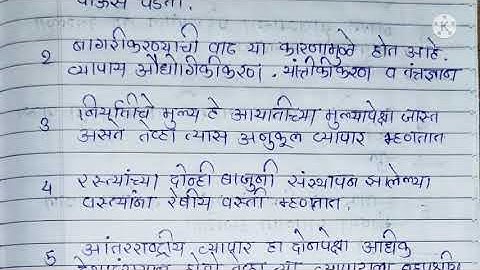 पाऊस पडतो.
2 नागरीकरण्याची वाढ या कारणामुळे होत आहे.
व्यापाय औद्योगिकीकरण, यांत्रीकीकरण व तंत्रज्ञान
3 निर्यातीचे मुल्य हे आयातीच्या मुल्यापेक्षा जास्त
असते तेव्हा त्यास अनुकूल व्यापार म्हणतात
4 रस्त्यांच्या दोन्ही बाजुनी संस्थापन झालेल्या
वस्त्यांना रेषीय वस्ती म्हणतात.
5 आंतरराष्ट्रीय व्यापार हा दोनपेक्षा अधिक